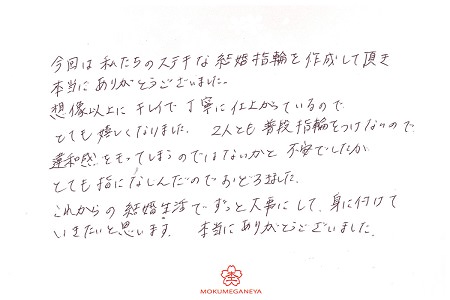 今回は私たちのステキな結婚指輪を作成して頂き
本当にありがとうございました。
想像以上にキレイで丁寧に仕上がっているので
とても嬉しくなりました。 2人とも普段指輪をつけないので
違和感をもってしまうのではないかと不安でしたが
とても指になじんだのでおどろきました。
これからの結婚生活でずっと大事にして、身に付けて
いきたいと思います。 本当にありがとうございました。
MOKUMEGANEYA